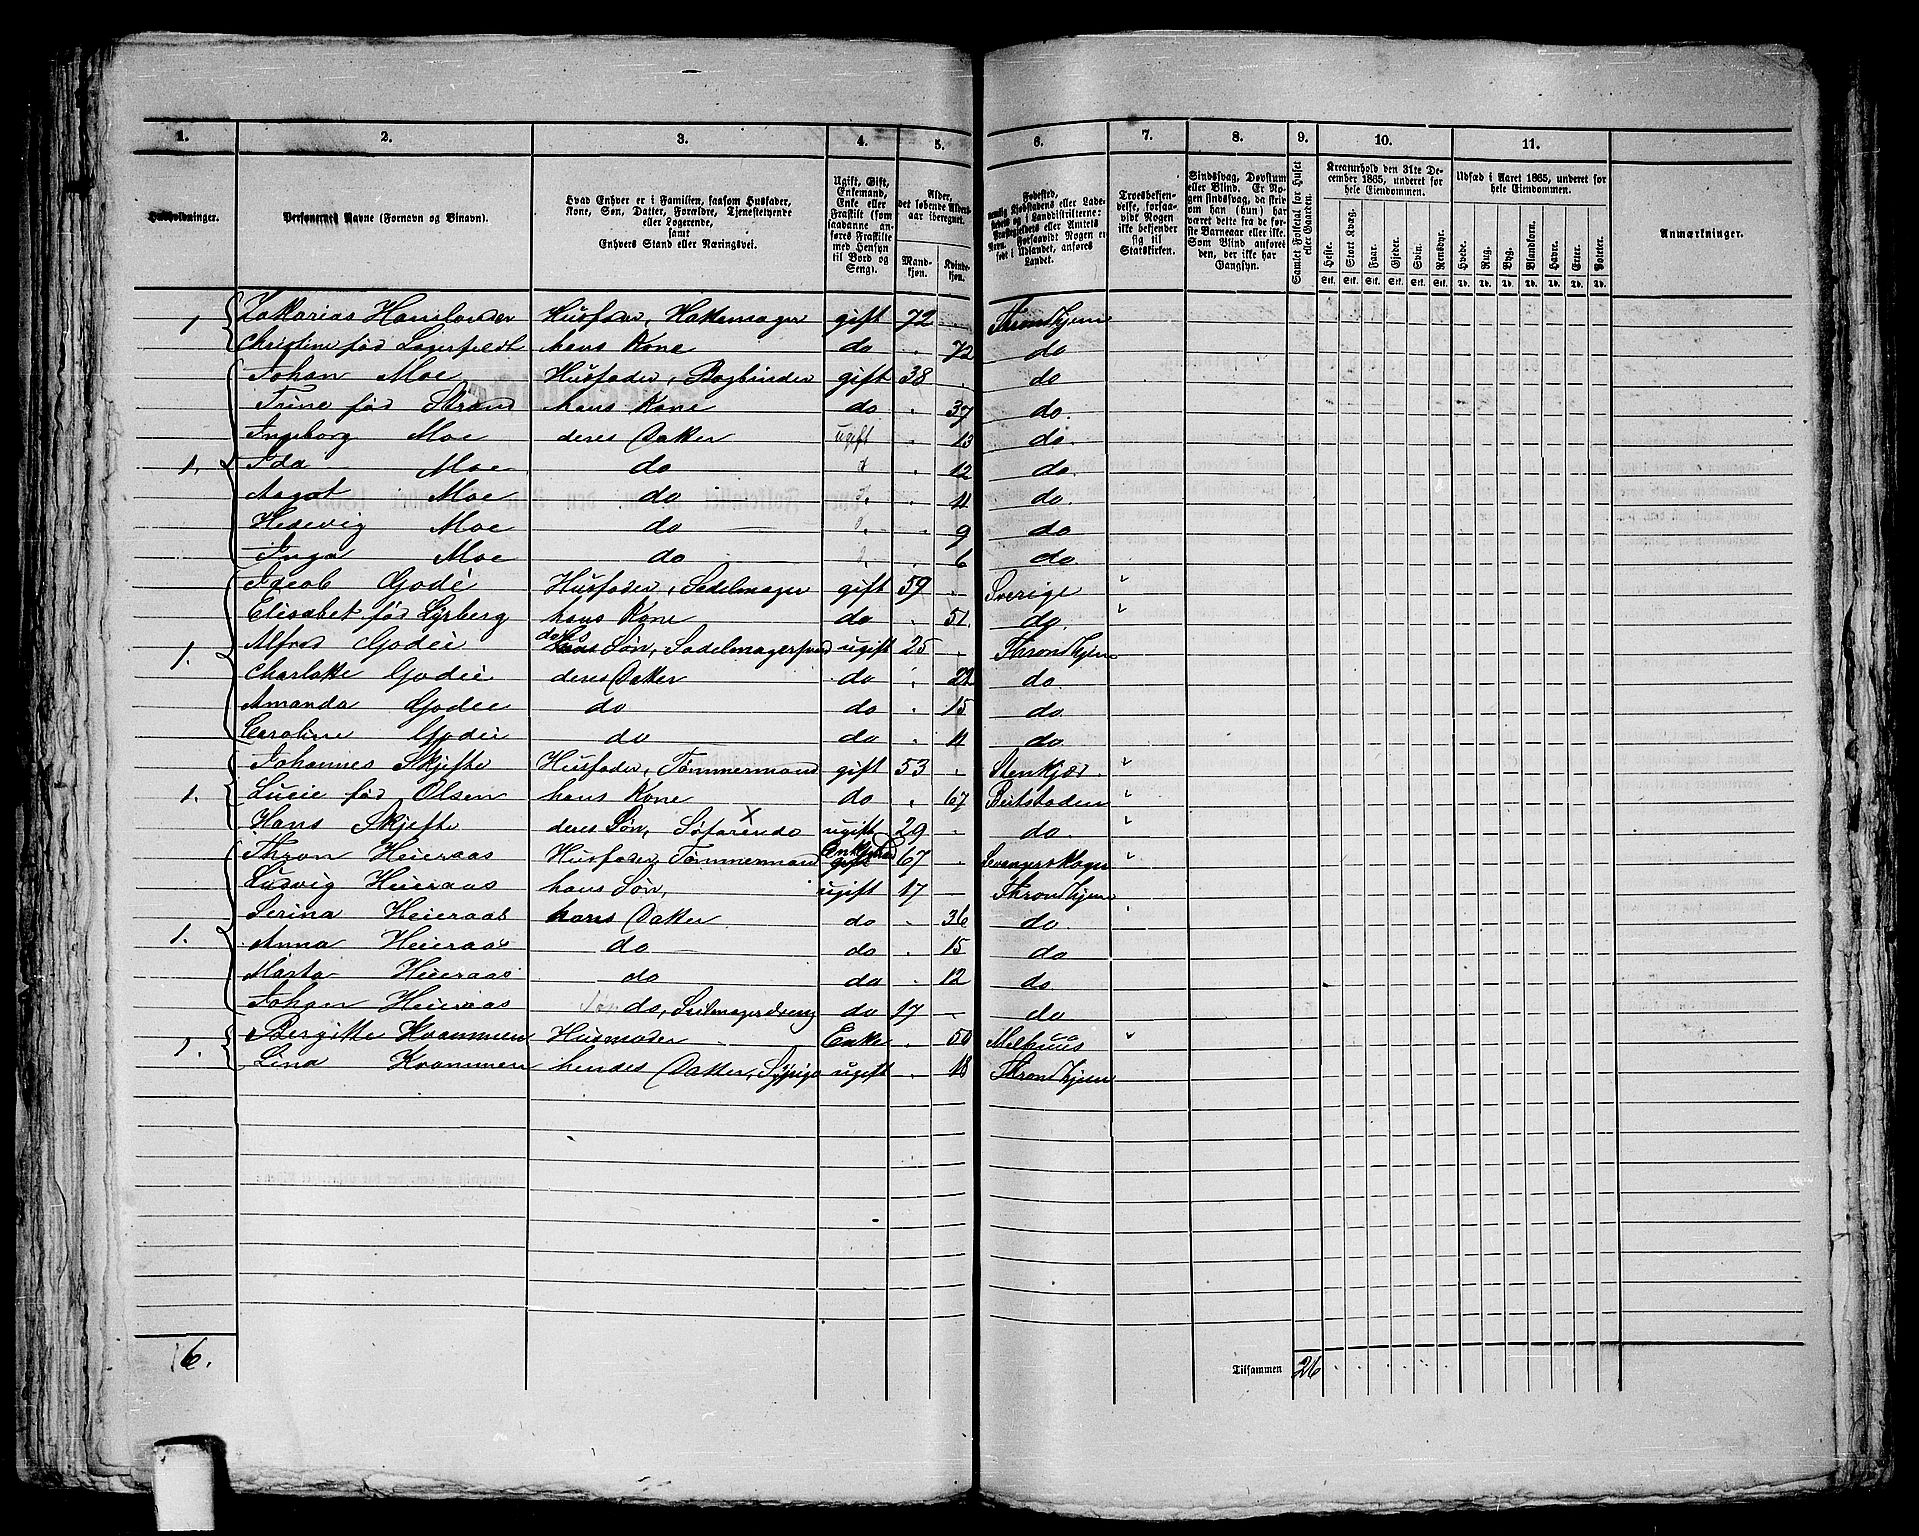 1. 2. 3. 4. 5. 6. 7. 8. 9. 10. 11.
Husholdninger.
Personernes Navne (Fornavn og Binavn).
Hvad Enhver er i Familien, saasom Husfader,
Kone, Søn, Datter, Forældre, Tjenestetyende
eller Logerende,
samt
Enhvers Stand eller Næringsvei.
Ugift, Gift,
Enkemand,
Enke eller
Fraskilt (som
saadanne an-
føres Fraskilte
med Hensyn
til Bord og
Seng).
Alder,
det løbende Alders-
aar iberegnet.
Mand-
kjøn.
Kvinde-
kjøn.
Fødested,
nemlig Kjøbstadens eller Lade-
stedets og i Landdistrikterne:
Præstegjeldets eller Amtets
Navn. Forsaavidt Nogen er
født i Udlandet, anføres
Landet.
Troesbekjen-
delse, forsaa-
vidt Nogen
ikke bekjender
sig til
Statskirken.
Sindssvag, Døvstum
eller Blind. Er No-
gen sindssvag, da skriv
om han (hun) har
været dette fra de før-
ste Barneaar eller ikke.
Som Blind anføres
den, der ikke har
Gangsyn.
Samlet Folketal for Huset
eller Gaarden.
Kreaturhold den 31te De-
cember 1865, underet for
hele Eiendommen.
Heste. Stort Kvæg. Faar. Gjeder. Svin. Rensdyr.
Stk. Stk. Stk. Stk. Stk. Stk.
Udsæd i Aaret 1865, underet for
hele Eiendommen.
Hvede. Rug. Byg. Blandkorn. Havre. Erter. Poteter.
Td. Td. Td. Td. Td. Td. Td.
Anmærkninger.
1 Zakarias Husfader, gift 72 Throndhjem
Christine født hans Kone do 72 do
Johan Moe Husfader, Bogbinder gift 38 do
Trine fød Strand hans Kone do 37 do.
Ingeborg Moe deres Datter ugift 13 do.
1. Ida Moe do 12 do.
Aagot Moe do 11 do.
Hedevig Moe do 9 do
Inga Moe do 6 do.
Jacob Godé Husfader, Sadelmager gift 59 Sverige
Elisabet fød Lyrberg hans Kone do 51. do.
1. Alfred Godée deres Søn, Sadelmagersvend ugift 25 Throndhjem
Charlotte Godée deres Datter do 22 do.
Amanda Godée do do 15 do
Caroline Godée do do 11 do
Johannes Skjefte Husfader, Tømmermand gift 53 Stenkjær.
1. Lucie fød Olsen hans Kone do 67 Beitstaden
Hans Skjefte deres Søn, Søfarende ugift 29 do.
Thron Heieraas Husfader, Tømmermand Enkemand 67
Ludvig Heieraas hans Søn, ugift 17 Throndhjem
Serina Heieraas hans Datter do 36 do.
1. Anna Heieraas do do 15 do
Marta Heieraas do do 12 do
Johan Heieraas do, do 17 do
1. Bergitte Krammen Husmoder Enke 50 Melhuus
Lina Krammen hendes Datter, Sypige ugift 18 Throndhjem
6.
Tilsammen 26